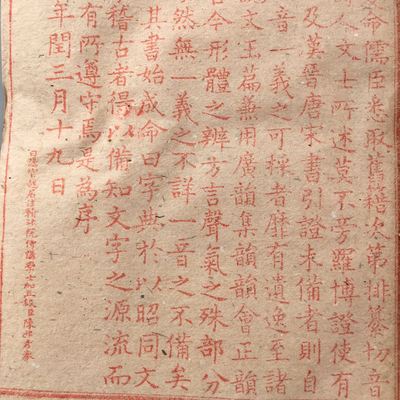 命儒臣悉取舊籍次第排纂切音
人文士所述莫不旁羅博證使有
及漢晉唐宋書引證未備者則自
音一義之可採者靡有遺逸至諸
說文玉篇兼用廣韻集韻韻會正韻
古今形體之辨方言聲氣之殊部分
然無一義之不詳一音之不備矣
其書始成命曰字典於以昭同文
稽古者得以備知文字之源流而
有所遵守焉是為序
年閏三月十九日
日講官起居注翰林院侍講學士加五級臣陳邦彥奉